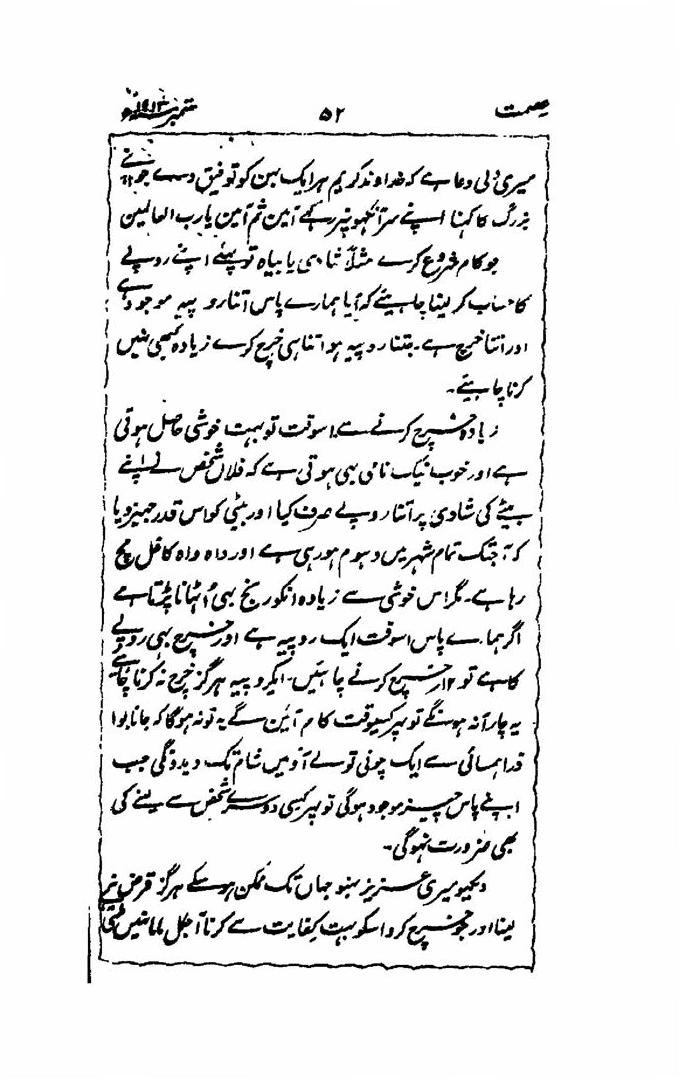 عصمت ۵۲ ستمبر ۱۹۱۳ء
میری دلی دعا ہے کہ خداوند کریم ہر ایک بہن کو توفیق دے جو اپنے
بزرگ کا کہنا اپنے سر آنکھونپر رکھے آمین ثم آمین یا رب العالمین
جو کام شروع کرے مثلاً شادی یا بیاہ تو پہلے اپنے روپے
کا حساب کر لینا چاہیئے کہ آیا ہمارے پاس اتنا روپیہ موجود ہے
اور اتنا خرچ ہے۔ جتنا روپیہ ہو اتنا ہی خرچ کرے زیادہ کبھی نہیں
کرنا چاہیئے۔
زیادہ خرچ کرنے سے اسوقت تو بہت خوشی حاصل ہوتی
ہے اور خوب نیک نامی بہی ہوتی ہے کہ فلاں شخص نے اپنے
بیٹے کی شادی پر اتنا روپے صرف کیا اور بیٹی کو اس قدر جہیز دیا
کہ آجتک تمام شہر میں دہوم ہو رہی ہے اور واہ واہ کا غل مچ
رہا ہے۔ مگر اس خوشی سے زیادہ انکو رنج بھی اُٹہانا پڑتا ہے
اگر ہمارے پاس اسوقت ایک روپیہ ہے اور خرچ بہی روپے
کا ہے تو ۱۲ر خرچ کرنے چاہئیں۔ ایکروپیہ ہرگز خرچ نہ کرنا چاہئے
یہ چار آنہ ہونگے تو پہر کسیوقت کام آئیں گے یہ تو نہ ہوگا کہ جانا بوا
ذرا ہمسائی سے ایک چونی تو لے آؤ میں شام تک دیدونگی جب
اپنے پاس چیز موجود ہوگی تو پہر کسی دوسرے شخص سے لینے کی
بھی ضرورت نہوگی۔
دیکہو میری عزیز بہنو جہاں تک ممکن ہو سکے ہرگز قرض نہ
لینا اور جو خرچ کرو اسکو بہت کفایت سے کرنا آجکل ماما نہیں ملتی